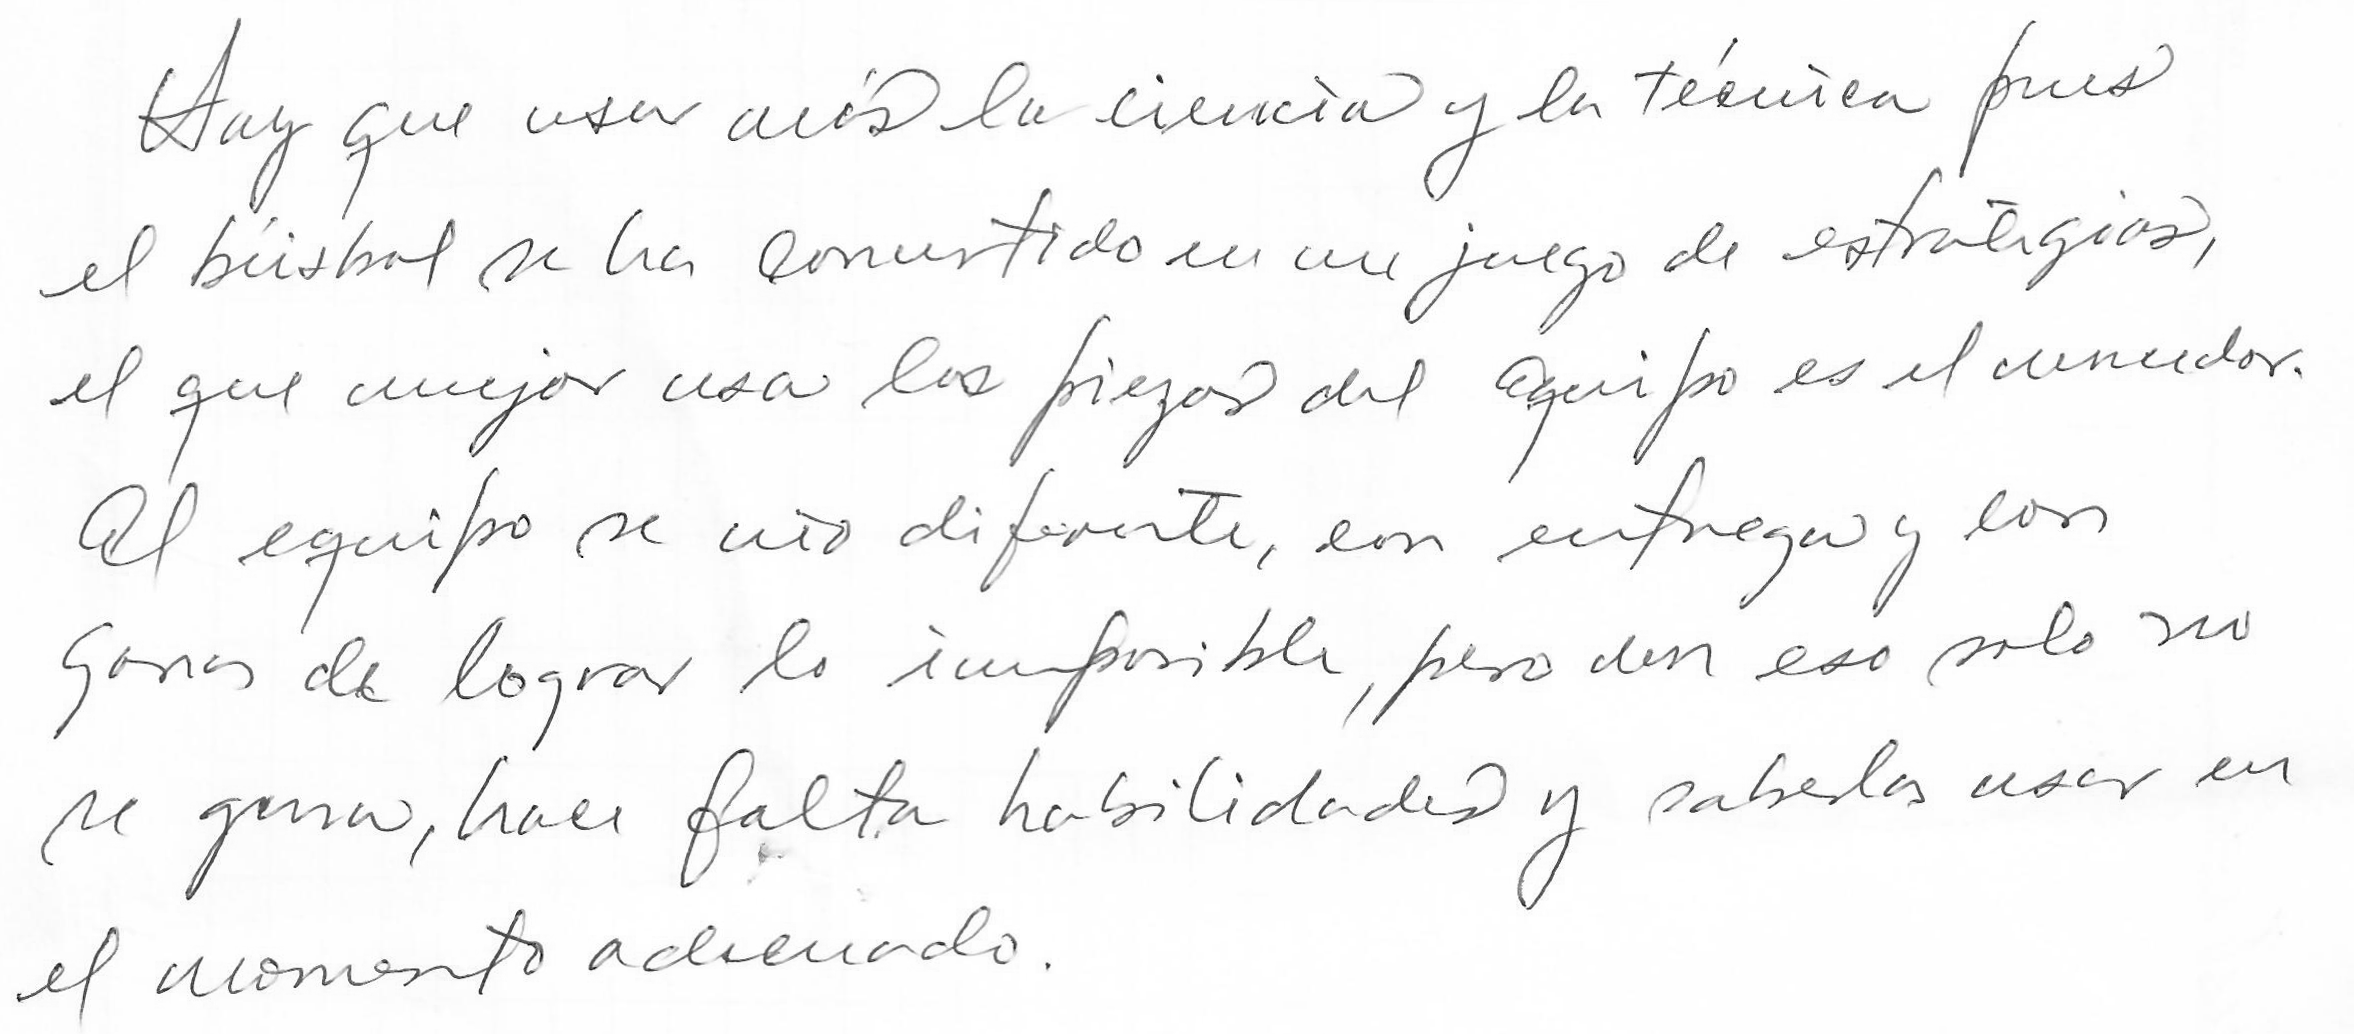 Hay que usar más la ciencia y la técnica pues
el béisbol se ha convertido en un juego de estrategias,
el que mejor usa las piezas del equipo es el vencedor.
El equipo se vio diferente, con entrega y con
ganas de lograr lo imposible, pero con eso solo no
se gana, hace falta habilidades y saberlas usar en
el momento adecuado.